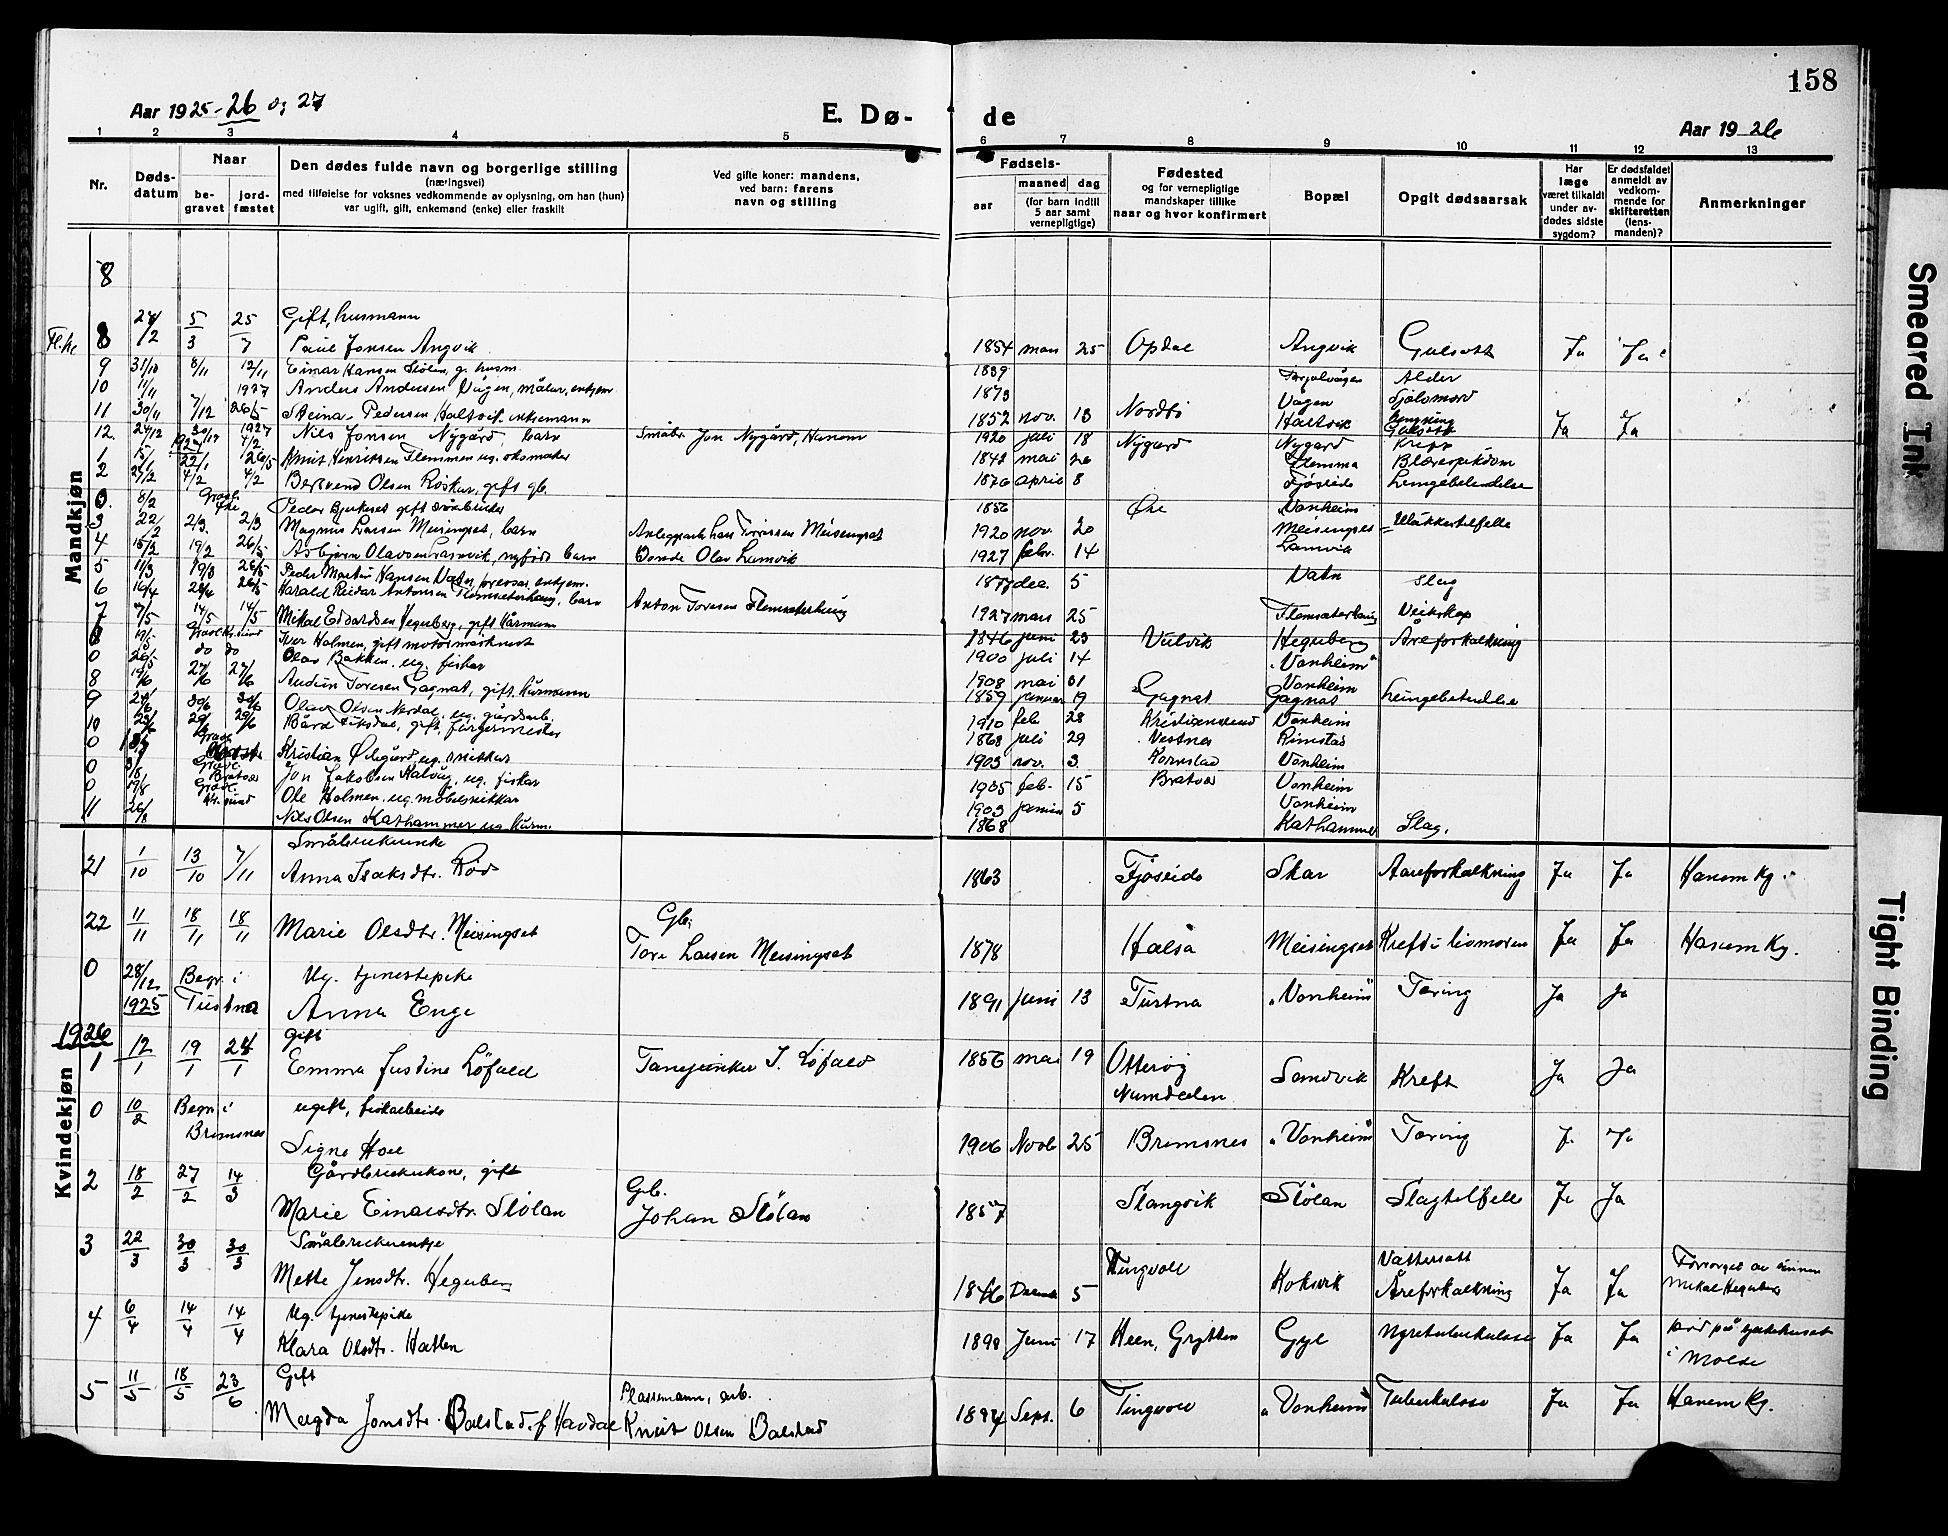 158
Aar 1925-26 og 27
E. Dø-
de
Aar 1926
1 2 3 4 5 6 7 8 9 10 11 12 13
Nr.
Døds-
datum
Naar
be-
gravet
jord-
fæstet
Den dødes fulde navn og borgerlige stilling
(næringsvei)
med tilføielse for voksnes vedkommende av oplysning, om han (hun)
var ugift, gift, enkemand (enke) eller fraskilt
Ved gifte koner: mandens,
ved barn: farens
navn og stilling
Fødsels-
aar
maaned dag
(for barn indtil
5 aar samt
vernepligtige)
Fødested
og for vernepligtige
mandskaper tillike
naar og hvor konfirmert
Bopæl
Opgit dødsaarsak
Har
læge
været tilkaldt
under av-
dødes sidste
sygdom?
Er dødsfaldet
anmeldt av
vedkom-
mende for
skifteretten
(lens-
manden)?
Anmerkninger
Mandkjøn
8
Gift, husmann
8 5/3 25/7 Paul Jonsen Angvik 1854 mars 25 Opdal Angvik Gulsott Ja Ja
9 31/10 8/11 12/11 Einar Hansen Stølen, g. husm. 1839 Alder
10 11/11 1927 Anders Andersen Vågen, måler, enkjem. 1873 Vågen Sjølvmord
11 30/11 7/12 26/5 Steinar Pedersen Halsvik, enkemann 1852 nov. 13 Nordbø Halsvik Ja Ja
12. 24/12 30/12 1927 4/2 Nils Jonsen Nygård, barn Småbr. Jon Nygård, Hanem 1920 juli 18 Nygård Nygård Krupp
1 22/1 26/5 Knut Henriksen Flemmen ug. skomaker 1842 mai 26 Flemma Blæresykdom
2 4/2 4/2 Bertrand Olsen Roskar, gift gb. 1876 april 8 Fjøseide Lungebetendelse
0. 8/2 Gravl. Øre Peder Bjerkeset gift 1856 Øre Vonheim
3 22/2 2/3. 2/3 Magnus Larsen Meisingset, barn Anleggsarb. Lars Toresen Meisingset 1920 nov. 20 Meisingset Ulukkestilfelle
4 15/2 19/2 26/5 Asbjørn Olavsen Larsvik, nyfødt barn Bonde Olav Larsvik 1927 febr. 14
5 11/3 19/3 26/5 Peder Martin Hansen Vatn, enkjem. 1877 dec. 5 Vatn Slag
6 19/4 24/4 26/5 Harald Reidar Antonsen Flemsæterhaug, barn Anton Toresen Flemsæterhaug 1927 mars 25 Flemsæterhaug Veikskap
7 7/5 14/5 14/5 Mikal Edvardsen Heguberg, gift kårmann 1846 juni 23 Vulvik Heguberg Åreforkalkning
0 19/5 Gravl. Kr.sund Iver Holmen, gift motormaskinist 1900 juli 14 "Vonheim"
0 26/5 do do Olav Bakken, ug. fisker 1908 mai 31 Vonheim
8 19/6 27/6 27/6 Audun Toresen Gagnat, gift. kårmann 1859 januar 19 Gagnat Gagnat Lungebetendelse
9 24/6 30/6 30/6 Olav Olsen Nerdal, ug. gårdsarb. 1910 feb 28 Kristiansund Vonheim
10 29/6 29/6 Bård Eiksdal, gift, fargermester 1868 juli 29 Vestnes Rimstad
0 Gravl. Kristian Ødegård, ug. snikkar 1903 nov. 3 Kornstad Vonheim
0 Gravl. Bratvær Jon Jakobsen Kalvåg, ug. fisker 1905 feb. 15 Bratvær Vonheim
0 19/8 Gravl. Kr.sund Ole Holmen, ug. møbelsnikkar 1903 januar 5 Vonheim
11 26/8 Nils Olsen Kathammer ug. kårm. 1868 Kathammer Slag.
Kvindekjøn
Småbrukerenke
21 1/10 13/10 7/11 Anna Isaksdtr. Rød 1863 Fjøseide Skar Aareforkalkning Ja Ja Hanem Kg.
22 11/11 18/11 18/11 Marie Olsdtr. Meisingset Gb. Tore Larsen Meisingset 1878 Halsa Meisingset Kreft i livmoren Ja Ja Hanem Kg.
0 28/12 1925 Begr. i Tustna Ug. tjenestepike Anna Enge 1891 Juni 13 Tustna "Vonheim" Tæring Ja Ja
1926
1 12/1 19/1 24/1 Gift Emma Justine Løfald I. Løfald 1856 mai 19 Otterøy Namdalen Sandvik Kreft Ja Ja
0 10/2 Begr. i Bremsnes ugift, fiskarbeids Signe Hoel 1906 Novb 25 Bremsnes "Vonheim" Tæring J. J.
2 18/2 27/2 14/3 Gårdbrukerkone, gift Marie Einarsdtr. Stølan Gb. Johan Stølan 1857 Stangvik Stølan Slagtilfelle Ja Ja
3 22/3 30/3 30/3 Småbrukerenkje Mette Jensdtr. Heguberg 1846 Decemb 5 Tingvoll Koksvik Vattersott Åreforkalkning Ja Ja Forsørget av sønnen Mikal Heguberg
4 6/4 14/4 14/4 Ug. tjenestepike Klara Olsdtr. Hatlen 1890 Juni 17 Heen, Grytten Gyl Nyretuberkulose Ja Ja Død på sykehuset i Molde
5 11/5 18/5 23/6 Gift Magda Jonsdtr. Balstad f. Havdal Plassemann, arb. Knut Olsen Balstad 1894 Sept. 6 Tingvoll "Vonheim" Tuberkulose Ja Ja Hanem Kg.
Smeared Ink
Tight Binding